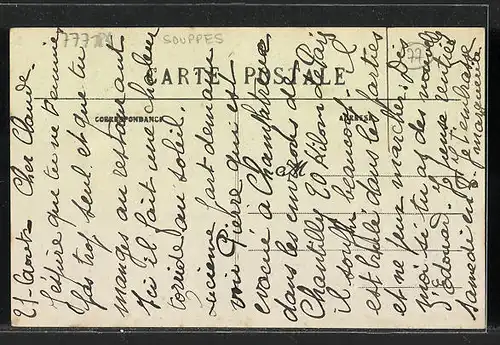 77781
SOUPPES
77
CARTE POSTALE
CORRESPONDANCE
ADRESSE
21-Août - Cher Claude.
J'espère que tu ne t'ennuies
pas trop seul et que tu
manges au restaurant
Ici il fait une chaleur
torride au soleil.
Lucienne part demain
voir Pierre qui est
évacué à
dans les environs de
Chantilly 20 kilom de Paris
il souffre beaucoup il
est brûlé dans les pattes
et ne peut marcher. Dis
moi si tu as des nouvelles
d'Edouard. Je pense rentrer
samedi en 8. Je t'embrasse
Marguerite